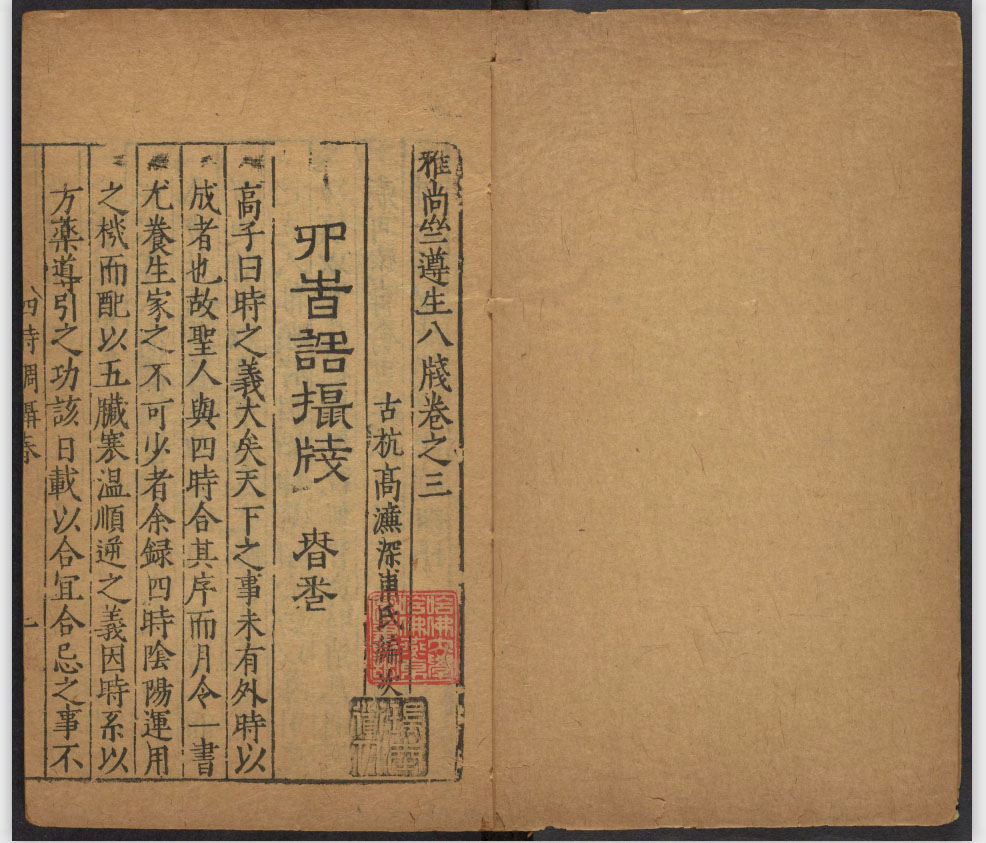 雅尚𫝊遵生八牋卷之三
古杭高濂深甫氏編次
四時調攝牋 春卷
高子曰時之義大矣天下之事未有外時以
成者也故聖人與四時合其序而月令一書
尤養生家之不可少者余録四時陰陽運用
之機而配以五臟寒温順逆之義因時系以
方藥導引之功該日載以合宜合忌之事不
四時調攝春
一